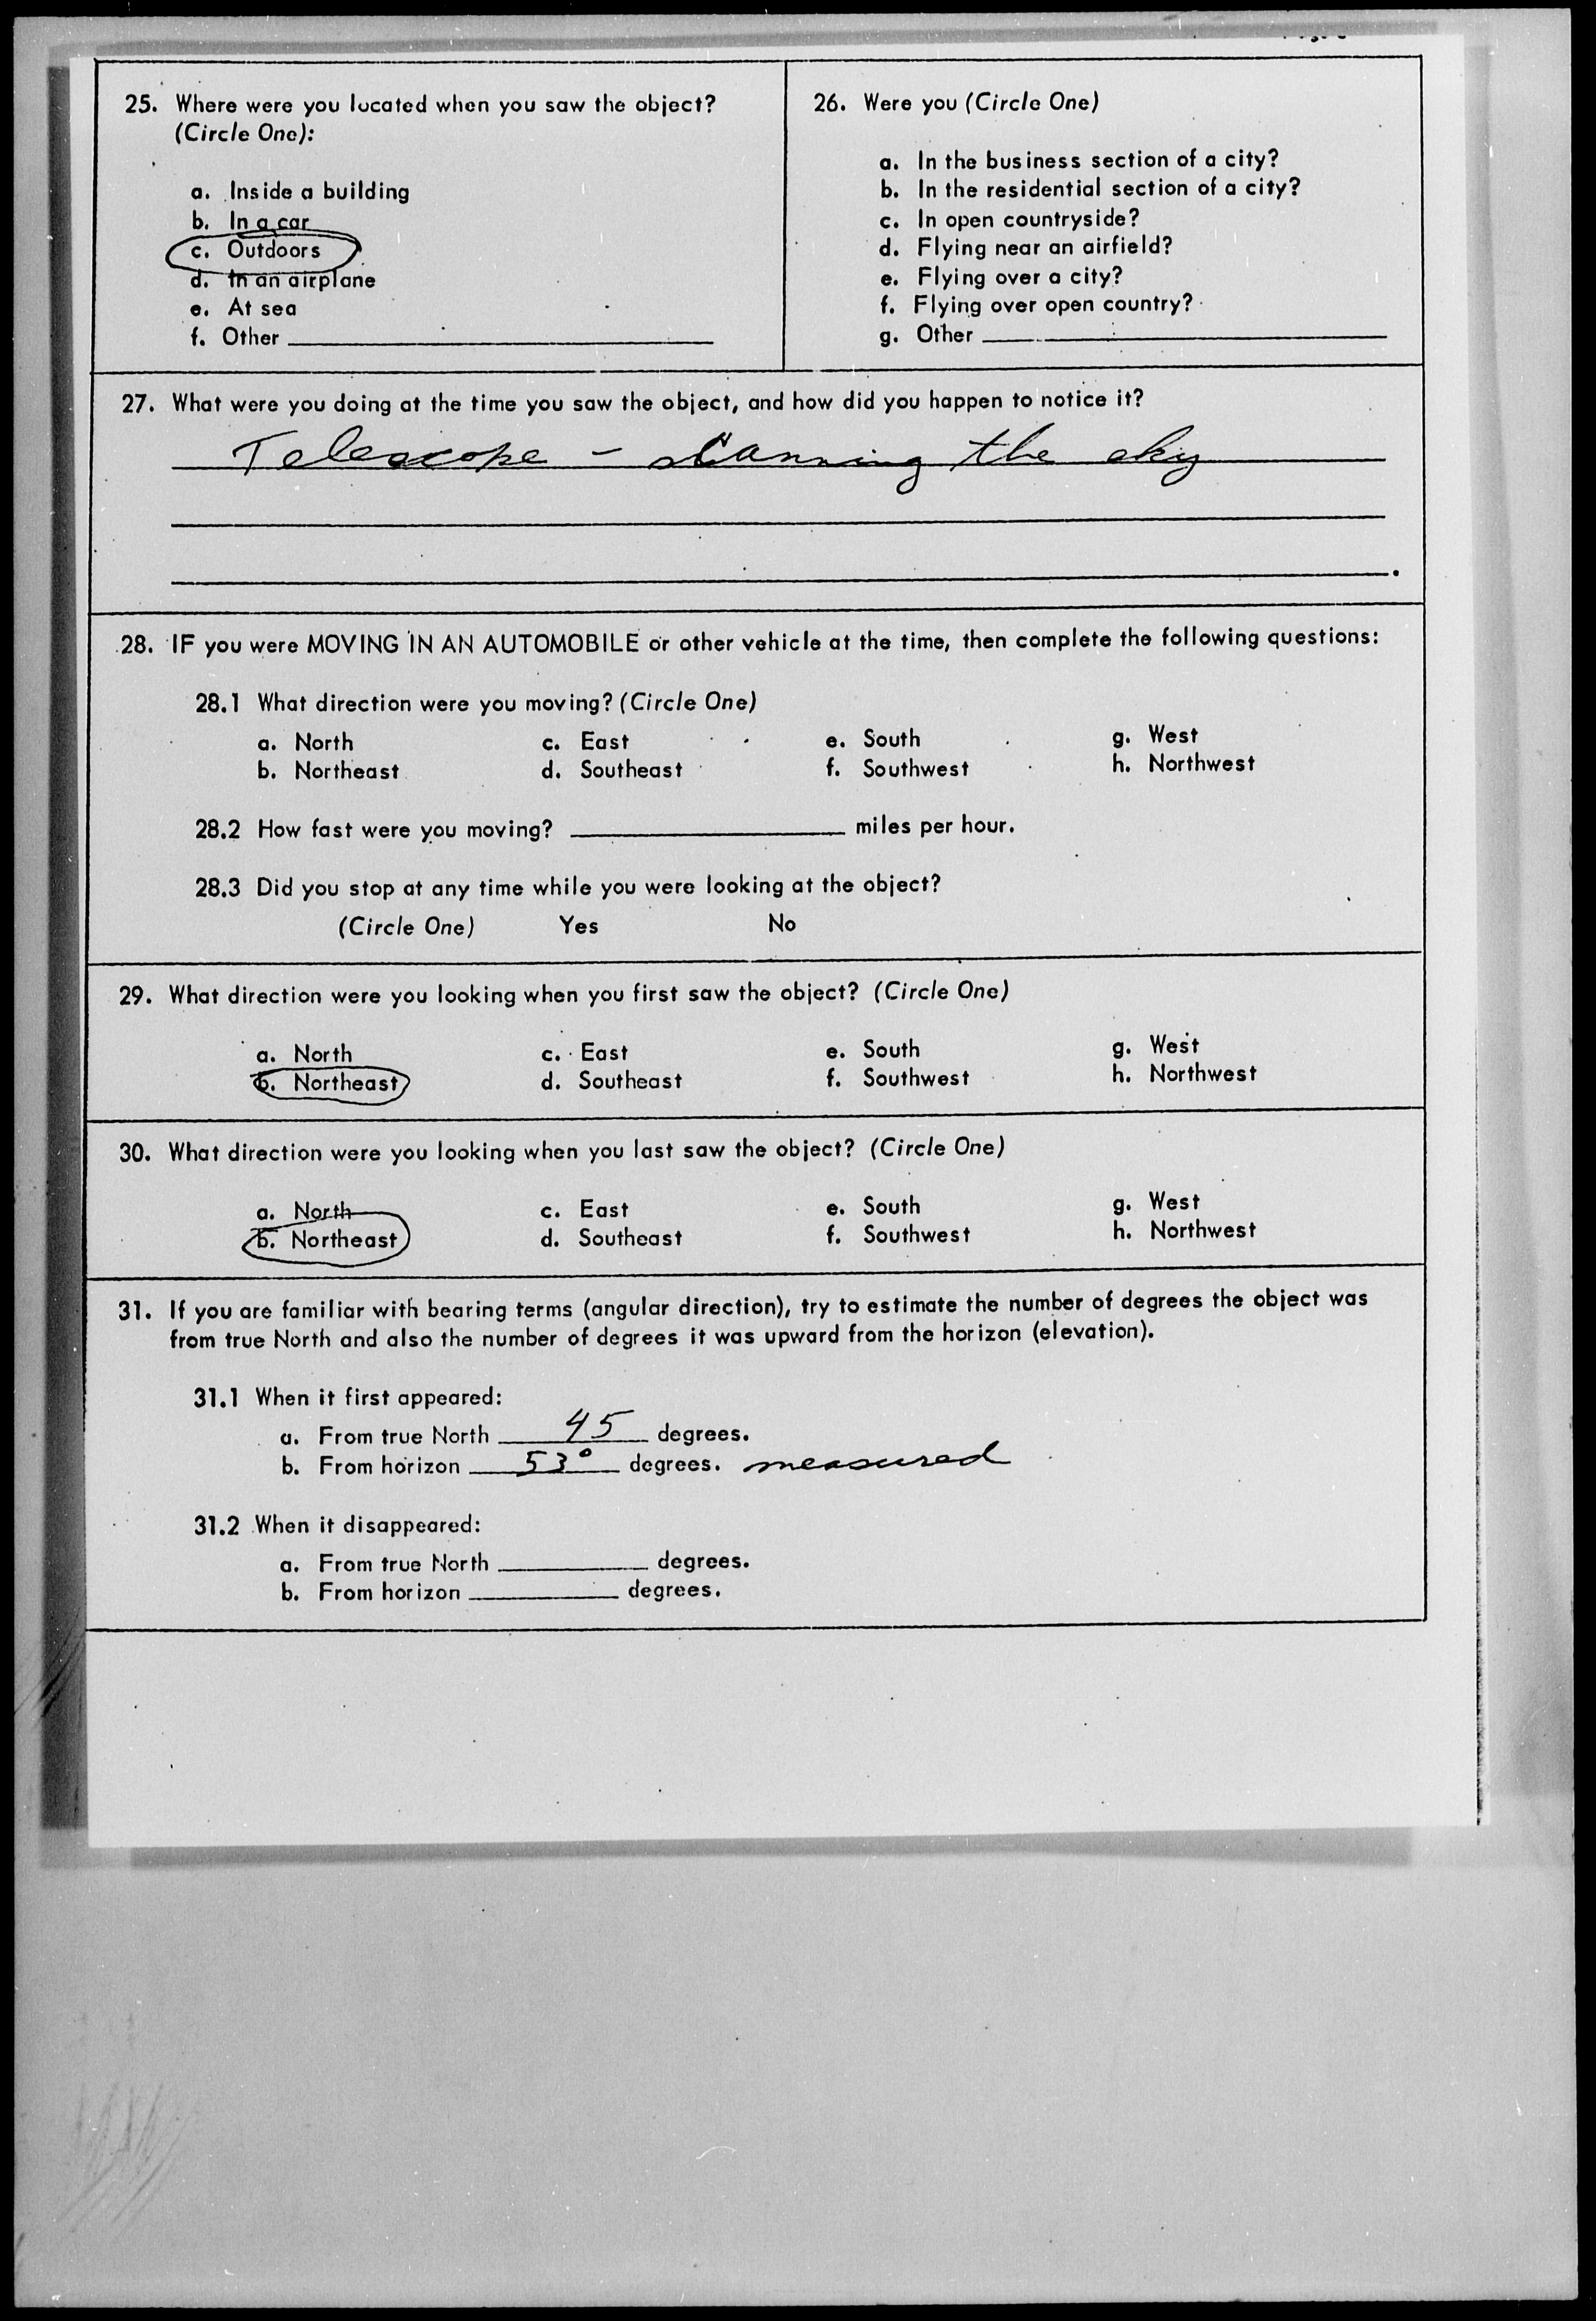 25. Where were you located when you saw the object?
(Circle One):
a. Inside a building
b. In a car
c. Outdoors
d. In an airplane
e. At sea
f. Other
26. Were you (Circle One)
a. In the business section of a city?
b. In the residential section of a city?
c. In open countryside?
d. Flying near an airfield?
e. Flying over a city?
f. Flying over open country?
g. Other
27. What were you doing at the time you saw the object, and how did you happen to notice it?
Telescope - scanning the sky
28. IF you were MOVING IN AN AUTOMOBILE or other vehicle at the time, then complete the following questions:
28.1 What direction were you moving? (Circle One)
a. North c. East e. South g. West
b. Northeast d. Southeast f. Southwest h. Northwest
28.2 How fast were you moving? miles per hour.
28.3 Did you stop at any time while you were looking at the object?
(Circle One) Yes No
29. What direction were you looking when you first saw the object? (Circle One)
a. North c. East e. South g. West
b. Northeast d. Southeast f. Southwest h. Northwest
30. What direction were you looking when you last saw the object? (Circle One)
a. North c. East e. South g. West
b. Northeast d. Southeast f. Southwest h. Northwest
31. If you are familiar with bearing terms (angular direction), try to estimate the number of degrees the object was
from true North and also the number of degrees it was upward from the horizon (elevation).
31.1 When it first appeared:
a. From true North 45 degrees.
b. From horizon 53° degrees. measured
31.2 When it disappeared:
a. From true North degrees.
b. From horizon degrees.